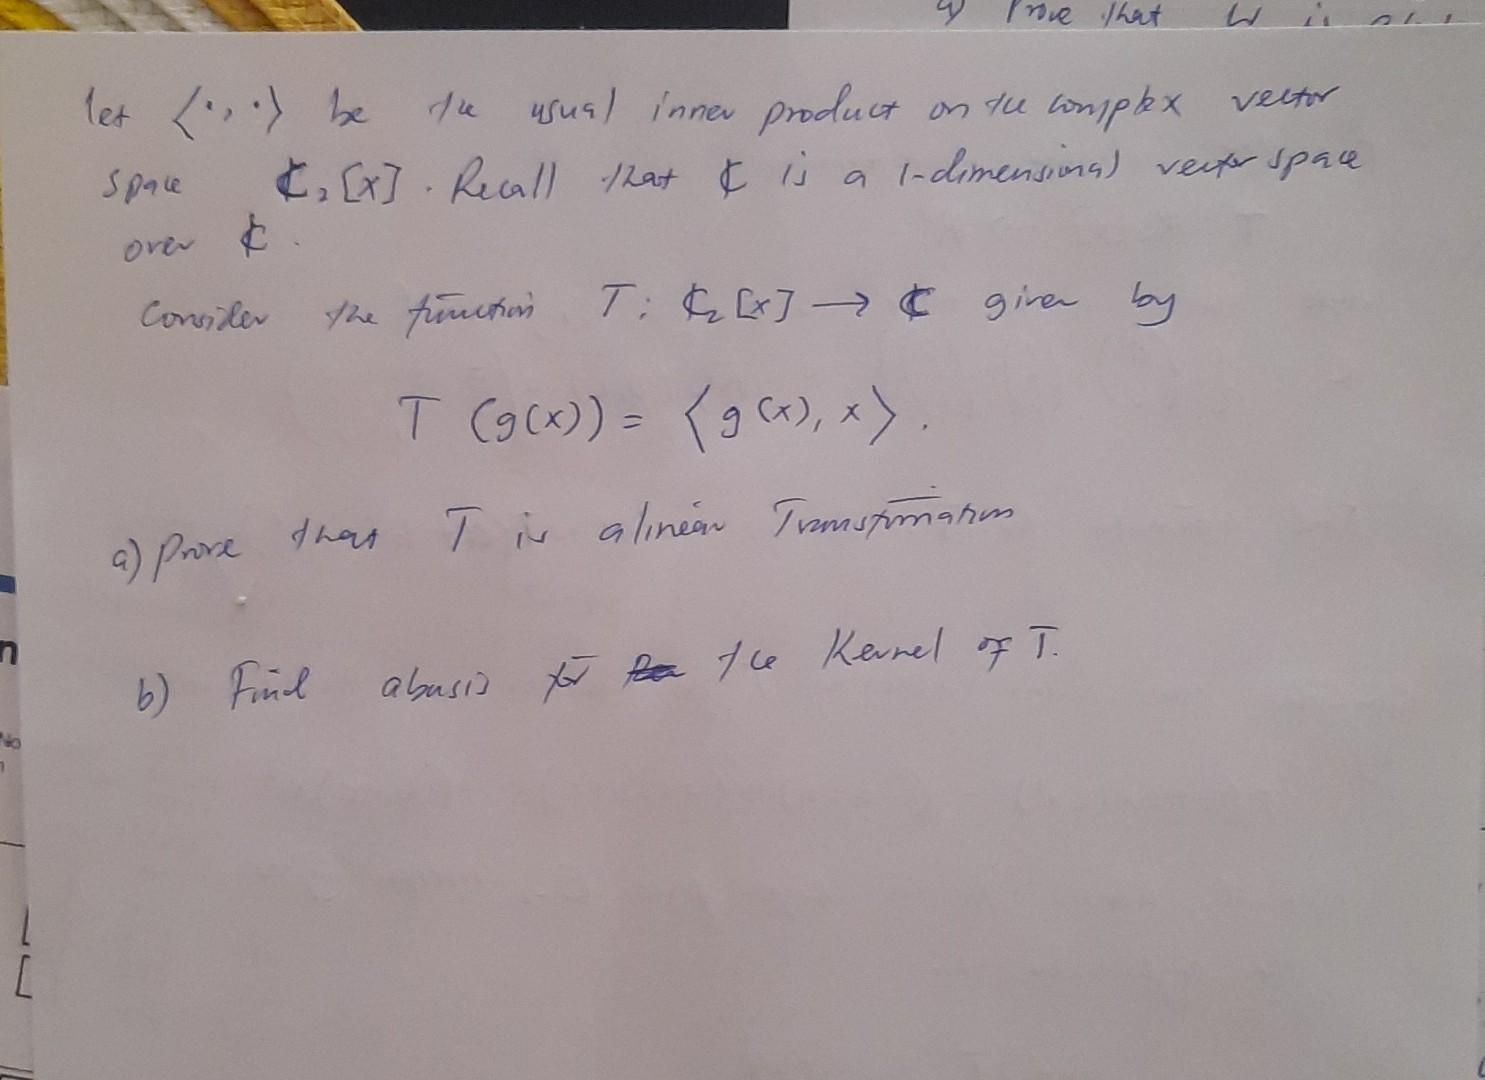 a) Prove that W is
let ⟨·,·⟩ be the usual inner product on the complex vector
space ℂ₂[x]. Recall that ℂ is a 1-dimensional vector space
over ℂ.
Consider the function T: ℂ₂[x] → ℂ given by
T (g(x)) = ⟨g(x), x⟩.
a) Prove that T is a linear Transformation
b) Find a basis for the Kernel of T.
n
No